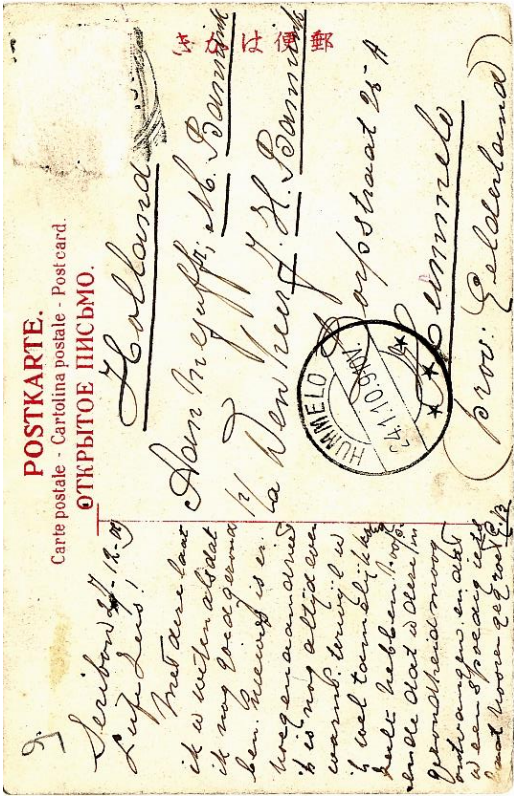 郵便はかき
POSTKARTE.
Carte postale - Cartolina postale - Postcard.
ОТКРЫТОЕ ПИСЬМО.
Holland
Aan Mejuffr; M. Bannink
p/a Den Heer J. H. Bannink
Dorpsstraat 25 A
Hummelo
(prov: Gelderland)
HUMMELO
24.1.10.9-10V.
12-09
Met deze laat
ik u weten als dat
ik nog goed gezond
ben. Nieuws is er
't is nog altijd even
warm. terwijl u
't wel tamelijk
hebben
ende dat u deze in
gezondheid moog
ontvangen en dat
u eens spoedig iets
laat hooren gegroet